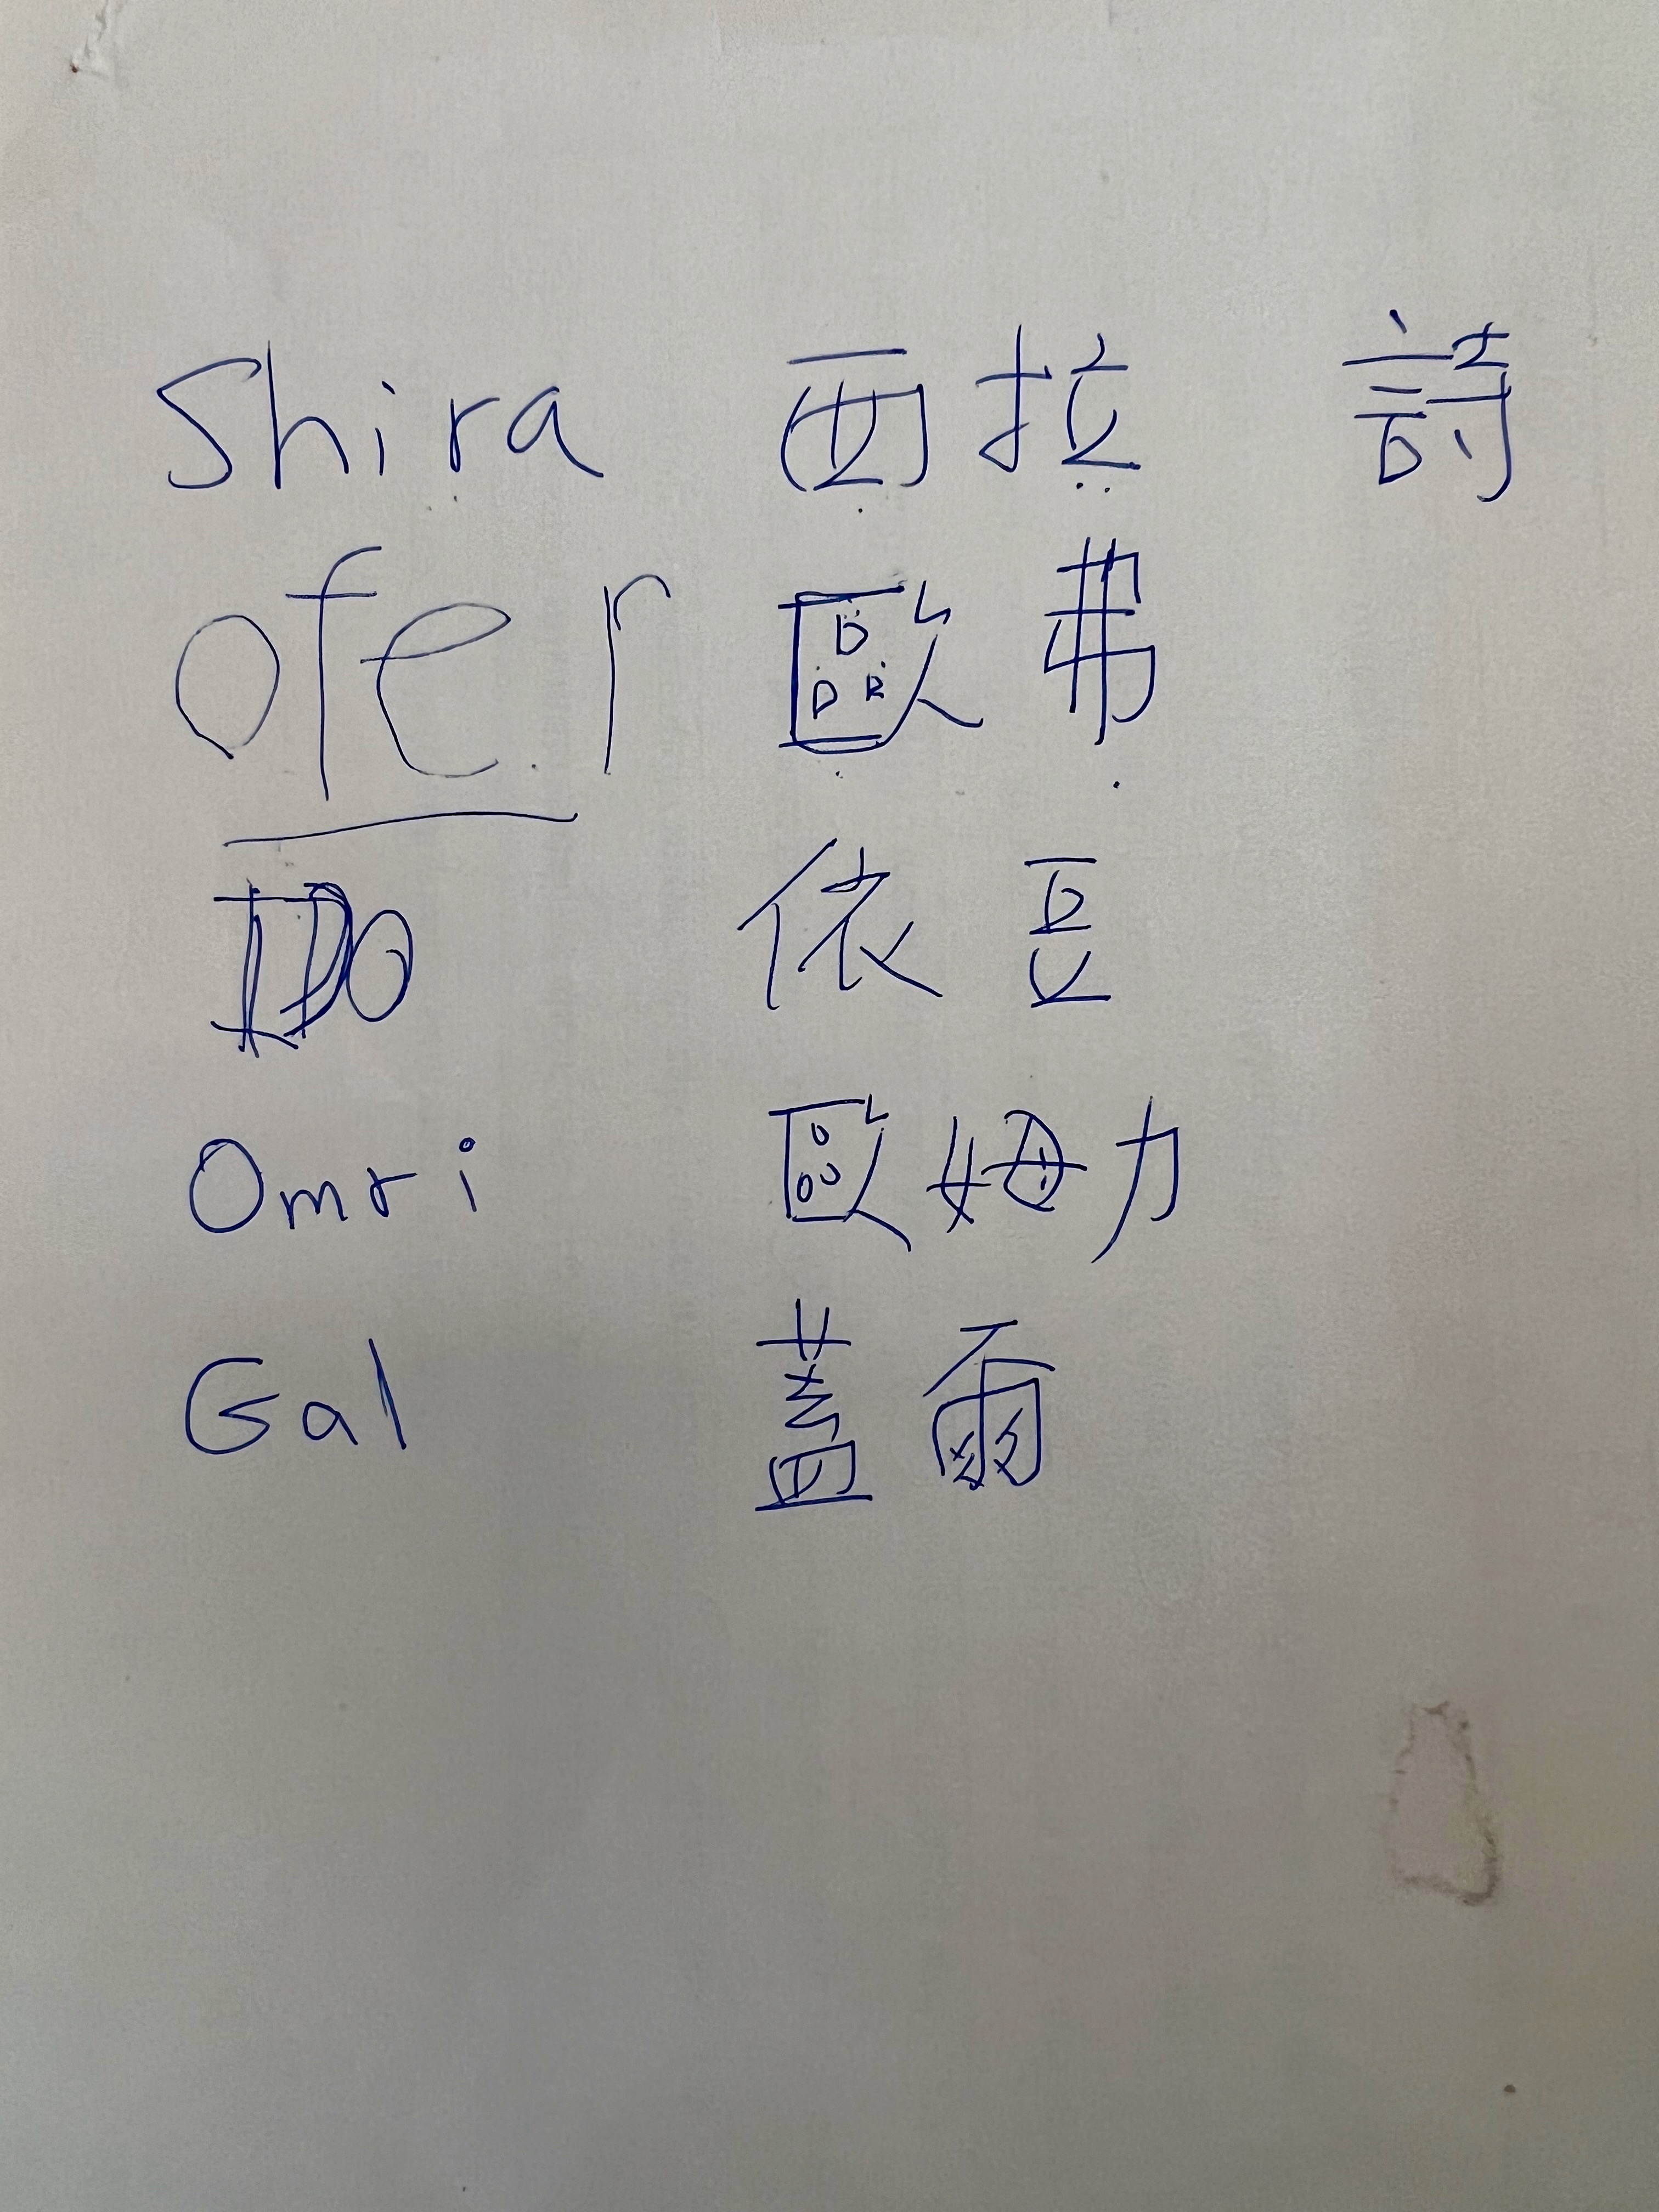 Shira 西拉 詩
ofer 歐弗
IDO 依豆
Omri 歐姆力
Gal 蓋爾